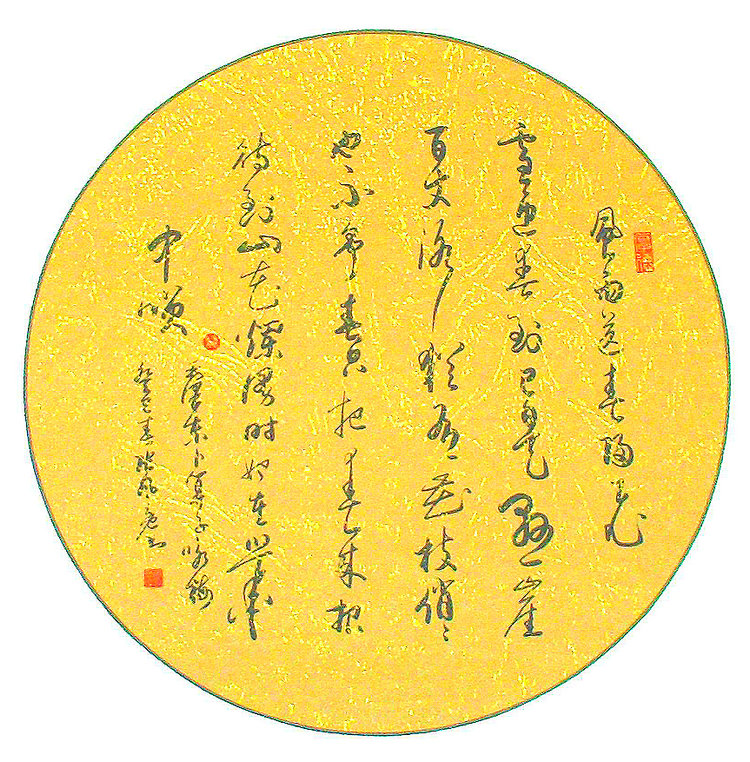 風雨送春歸飛
雪迎春到已是懸崖
百丈冰猶有花枝俏〻
也不争春只把春来报
待到山花爛漫时她在丛
中咲
毛澤东卜算子咏梅
春